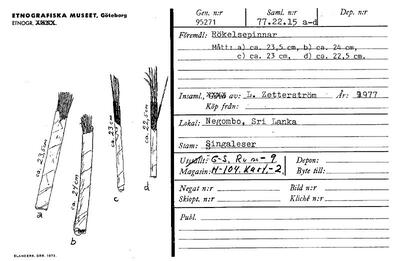 ETNOGRAFISKA MUSEET, Göteborg
ETNOGR.
ca. 23,5cm
ca. 24cm
ca. 23cm
ca. 22,5cm
a
b
c
d
ELANDERS, GBG. 1972.
Gen. n:r Saml. n:r Dep. n:r
95271 77.22.15 a-d
Föremål: Rökelsepinnar
Mått: a) ca. 23,5 cm, b) ca. 24 cm,
c) ca. 23 cm, d) ca. 22,5 cm.
Insaml. av: L. Zetterström År: 1977
Köp från:
Lokal: Negombo, Sri Lanka
Stam: Singaleser
Utställt: G-S, Rum-9. Depon:
Magasin: H-104, Karl.-2 Byte till:
Negat n:r Bild n:r
Skiopt. n:r Kliché n:r
Publ.